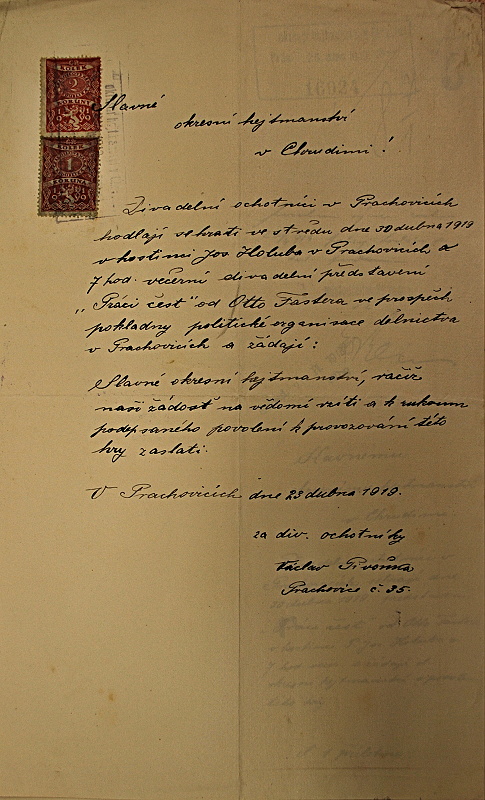 KOLEK
2
KORUNY
KOLEK
1
KORUNA
16924
Slavné
okresní hejtmanství
v Chrudimi!
Divadelní ochotníci v Prachovicích
hodlají sehrati ve středu dne 30 dubna 1919
v hostinci Jos Holuba v Prachovicích o
7 hod. večerní divadelní představení
"Práci čest" od Otto Fastera ve prospěch
pokladny politické organisace dělnictva
v Prachovicích a žádají:
Slavné okresní hejtmanství, račiž
naši žádosť na vědomí vzíti a k rukoum
podepsaného povolení k provozování této
hry zaslati.
V Prachovicích dne 23 dubna 1919.
za div. ochotníky
Václav Pivoňka
Prachovice č. 35.